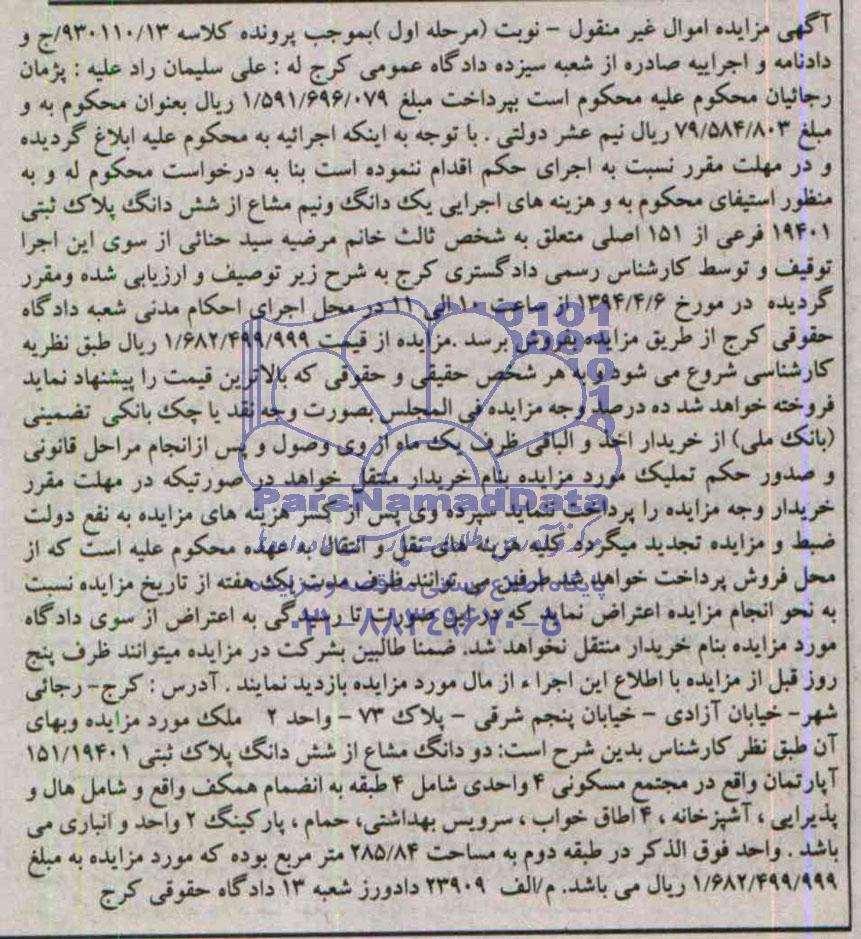 آگهی مزایده اموال غیر منقول - نوبت (مرحله اول )بموجب پرونده کلاسه ۹۳۰۱۱۰/۱۳/ج و
دادنامه و اجراییه صادره از شعبه سیزده دادگاه عمومی کرج له : علی سلیمان راد علیه : پژمان
رجائیان محکوم علیه محکوم است بپرداخت مبلغ ۱/۵۹۱/۶۹۶/۰۷۹ ریال بعنوان محکوم به و
مبلغ ۷۹/۵۸۴/۸۰۳ ریال نیم عشر دولتی . با توجه به اینکه اجرائیه به محکوم علیه ابلاغ گردیده
و در مهلت مقرر نسبت به اجرای حکم اقدام ننموده است بنا به درخواست محکوم له و به
منظور استیفای محکوم به و هزینه های اجرایی یک دانگ ونیم مشاع از شش دانگ پلاک ثبتی
۱۹۴۰۱ فرعی از ۱۵۱ اصلی متعلق به شخص ثالث خانم مرضیه سید حنائی از سوی این اجرا
توقیف و توسط کارشناس رسمی دادگستری کرج به شرح زیر توصیف و ارزیابی شده ومقرر
گردیده در مورخ ۱۳۹۴/۴/۶ از ساعت ۱۰ الی ۱۱ در محل اجرای احکام مدنی شعبه دادگاه
حقوقی کرج از طریق مزایده بفروش برسد .مزایده از قیمت ۱/۶۸۲/۴۹۹/۹۹۹ ریال طبق نظریه
کارشناسی شروع می شود و به هر شخص حقیقی و حقوقی که بالاترین قیمت را پیشنهاد نماید
فروخته خواهد شد ده درصد وجه مزایده فی المجلس بصورت وجه نقد یا چک بانکی تضمینی
(بانک ملی) از خریدار اخذ و الباقی ظرف یک ماه از وی وصول و پس ازانجام مراحل قانونی
و صدور حکم تملیک مورد مزایده بنام خریدار منتقل خواهد در صورتیکه در مهلت مقرر
خریدار وجه مزایده را پرداخت ننماید سپرده وی پس از کسر هزینه های مزایده به نفع دولت
ضبط و مزایده تجدید میگردد کلیه هزینه های نقل و انتقال به عهده محکوم علیه است که از
محل فروش پرداخت خواهد شد طرفین می توانند ظرف مدت یک هفته از تاریخ مزایده نسبت
به نحو انجام مزایده اعتراض نماید که در این صورت تا رسیدگی به اعتراض از سوی دادگاه
مورد مزایده بنام خریدار منتقل نخواهد شد. ضمنا طالبین بشرکت در مزایده میتوانند ظرف پنج
روز قبل از مزایده با اطلاع این اجراء از مال مورد مزایده بازدید نمایند . آدرس : کرج- رجائی
شهر- خیابان آزادی - خیابان پنجم شرقی - پلاک ۷۳ - واحد ۲ ملک مورد مزایده وبهای
آن طبق نظر کارشناس بدین شرح است: دو دانگ مشاع از شش دانگ پلاک ثبتی ۱۵۱/۱۹۴۰۱
آپارتمان واقع در مجتمع مسکونی ۴ واحدی شامل ۴ طبقه به انضمام همکف واقع و شامل هال و
پذیرایی ، آشپزخانه ، ۴ اطاق خواب ، سرویس بهداشتی، حمام ، پارکینگ ۲ واحد و انباری می
باشد . واحد فوق الذکر در طبقه دوم به مساحت ۲۸۵/۸۴ متر مربع بوده که مورد مزایده به مبلغ
۱/۶۸۲/۴۹۹/۹۹۹ ریال می باشد. م/الف ۲۳۹۰۹ دادورز شعبه ۱۳ دادگاه حقوقی کرج
ParsNamadData
پایگاه اطلاع رسانی مناقصه و مزایده
۰۲۱-۸۸۳۴۹۶۷۰-۵